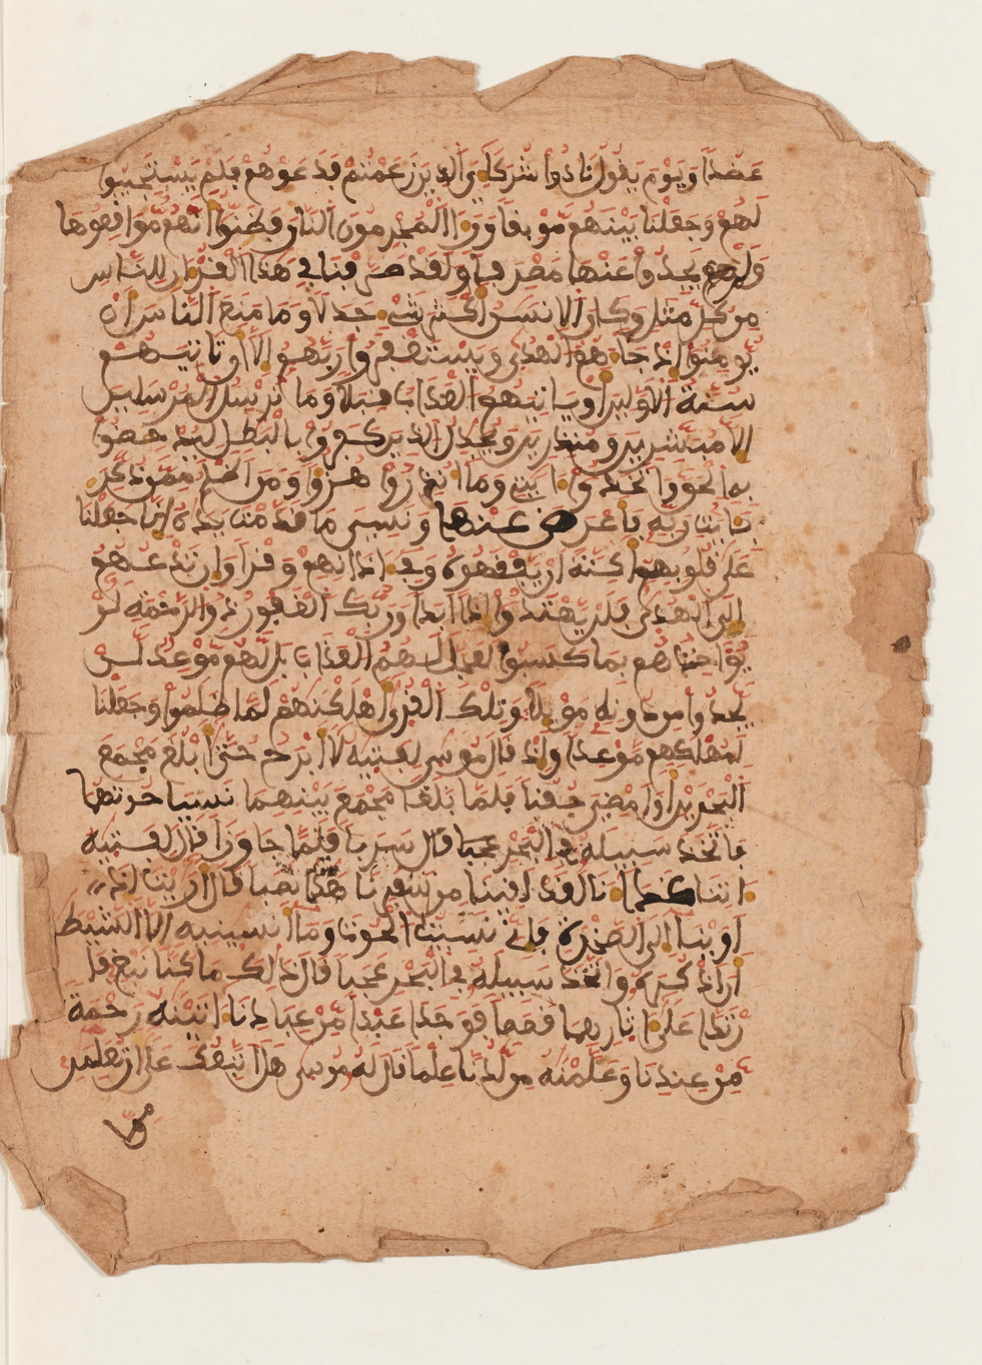 عَضُدًا وَيَوْمَ يَقُولُ نَادُوا شُرَكَاءِيَ الذِينَ زَعَمْتُمْ فَدَعَوْهُمْ فَلَمْ يَسْتَجِيبُوا
لَهُمْ وَجَعَلْنَا بَيْنَهُم مَّوْبِقًا وَرَءَا الْمُجْرِمُونَ النَّارَ فَظَنُّوا أَنَّهُم مُّوَاقِعُوهَا
وَلَمْ يَجِدُوا عَنْهَا مَصْرِفًا وَلَقَدْ صَرَّفْنَا فِي هَذَا الْقُرْءَانِ لِلنَّاسِ
مِن كُلِّ مَثَلٍ وَكَانَ الِانسَنُ أَكْثَرَ شَيْءٍ جَدَلًا وَمَا مَنَعَ النَّاسَ أَنْ
يُّومِنُوا إِذْ جَاءَهُمُ الْهُدَى وَيَسْتَغْفِرُوا رَبَّهُمُ إِلَّا أَن تَاتِيَهُمْ
سُنَّةُ الَاوَّلِينَ أَوْ يَاتِيَهُمُ الْعَذَابُ قِبَلًا وَمَا نُرْسِلُ الْمُرْسَلِينَ
إِلَّا مُبَشِّرِينَ وَمُنذِرِينَ وَيُجَدِلُ الذِينَ كَفَرُوا بِالْبَطِلِ لِيُدْحِضُوا
بِهِ الْحَقَّ وَاتَّخَذُوا ءَايَتِي وَمَا أُنذِرُوا هُزُؤًا وَمَنَ اظْلَمُ مِمَّن ذُكِّرَ
بِـَٔايَتِ رَبِّهِ فَأَعْرَضَ عَنْهَا وَنَسِيَ مَا قَدَّمَتْ يَدَهُ إِنَّا جَعَلْنَا
عَلَى قُلُوبِهِمُ أَكِنَّةً أَن يَفْقَهُوهُ وَفِي ءَاذَانِهِمْ وَقْرًا وَإِن تَدْعُهُمُ
إِلَى الْهُدَى فَلَنْ يَّهْتَدُوا إِذًا أَبَدًا وَرَبُّكَ الْغَفُورُ ذُو الرَّحْمَةِ لَوْ
يُؤَاخِذُهُم بِمَا كَسَبُوا لَعَجَّلَ لَهُمُ الْعَذَابَ بَل لَّهُم مَّوْعِدٌ لَّنْ
يَّجِدُوا مِن دُونِهِ مَوْئِلًا وَتِلْكَ الْقُرَى أَهْلَكْنَهُمْ لَمَّا ظَلَمُوا وَجَعَلْنَا
لِمُهْلَكِهِم مَّوْعِدًا وَإِذْ قَالَ مُوسَى لِفَتَيهُ لَا أَبْرَحُ حَتَّى أَبْلُغَ مَجْمَعَ
الْبَحْرَيْنِ أَوَ امْضِيَ حُقُبًا فَلَمَّا بَلَغَا مَجْمَعَ بَيْنِهِمَا نَسِيَا حُوتَهُمَا
فَاتَّخَذَ سَبِيلَهُ فِي الْبَحْرِ عجبا قال سَرَبًا فَلَمَّا جَاوَزَا قَالَ لِفَتَيهُ
ءَاتِنَا غَدَاءَنَا لَقَدْ لَقِينَا مِن سَفَرِنَا هَذَا نَصَبًا قَالَ أَرَٰيْتَ إِذَ
اَوَيْنَا إِلَى الصَّخْرَةِ فَإِنِّي نَسِيتُ الْحُوتَ وَمَا أَنسَينِيهِ إِلَّا الشَّيْطَ
أَنَ اذْكُرَهُ وَاتَّخَذَ سَبِيلَهُ فِي الْبَحْرِ عَجَبًا قَالَ ذَلِكَ مَا كُنَّا نَبْغِ فَا
رْتَدَّا عَلَى ءَاثَارِهِمَا قَصَصًا فَوَجَدَا عَبْدًا مِّنْ عِبَادِنَا ءَاتَيْنَهُ رَحْمَةً
مِّنْ عِندِنَا وَعَلَّمْنَهُ مِن لَّدُنَّا عِلْمًا قَالَ لَهُ مُوسَى هَلَ اتَّبِعُكَ عَلَى أَن تُعَلِّمَنِ
مِمَّا